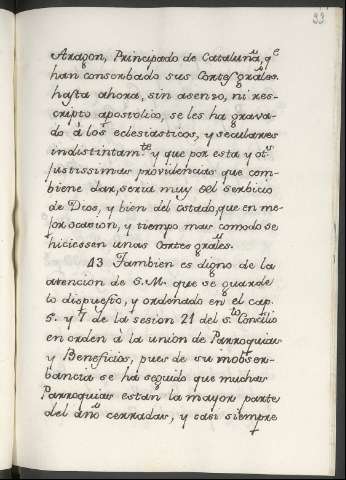 33
Aragon, Principado de Cataluña, q.e
han conserbado sus Cortes grãles.
hasta ahora, sin asenso, ni res-
cripto apostolico, se les ha grava-
do à los eclesiasticos, y seculares
indistintam.te y que por esta y ot.s
justissimas providencias que com-
biene dar, seria muy del serbicio
de Dios, y bien del estado, que en me-
jor ocasion, y tiempo mas comodo se
hiciessen unas Cortes grãles.
43 Tambien es digno de la
atencion de S. M. que se guarde
lo dispuesto, y ordenado en el cap.
5. y 7 de la sesion 21 del s.to Concilio
en orden à la union de Parroquias
y Beneficios, pues de su inobser-
bancia se há seguido que muchas
Parroquias estan la mayor parte
del año cerradas, y casi siempre